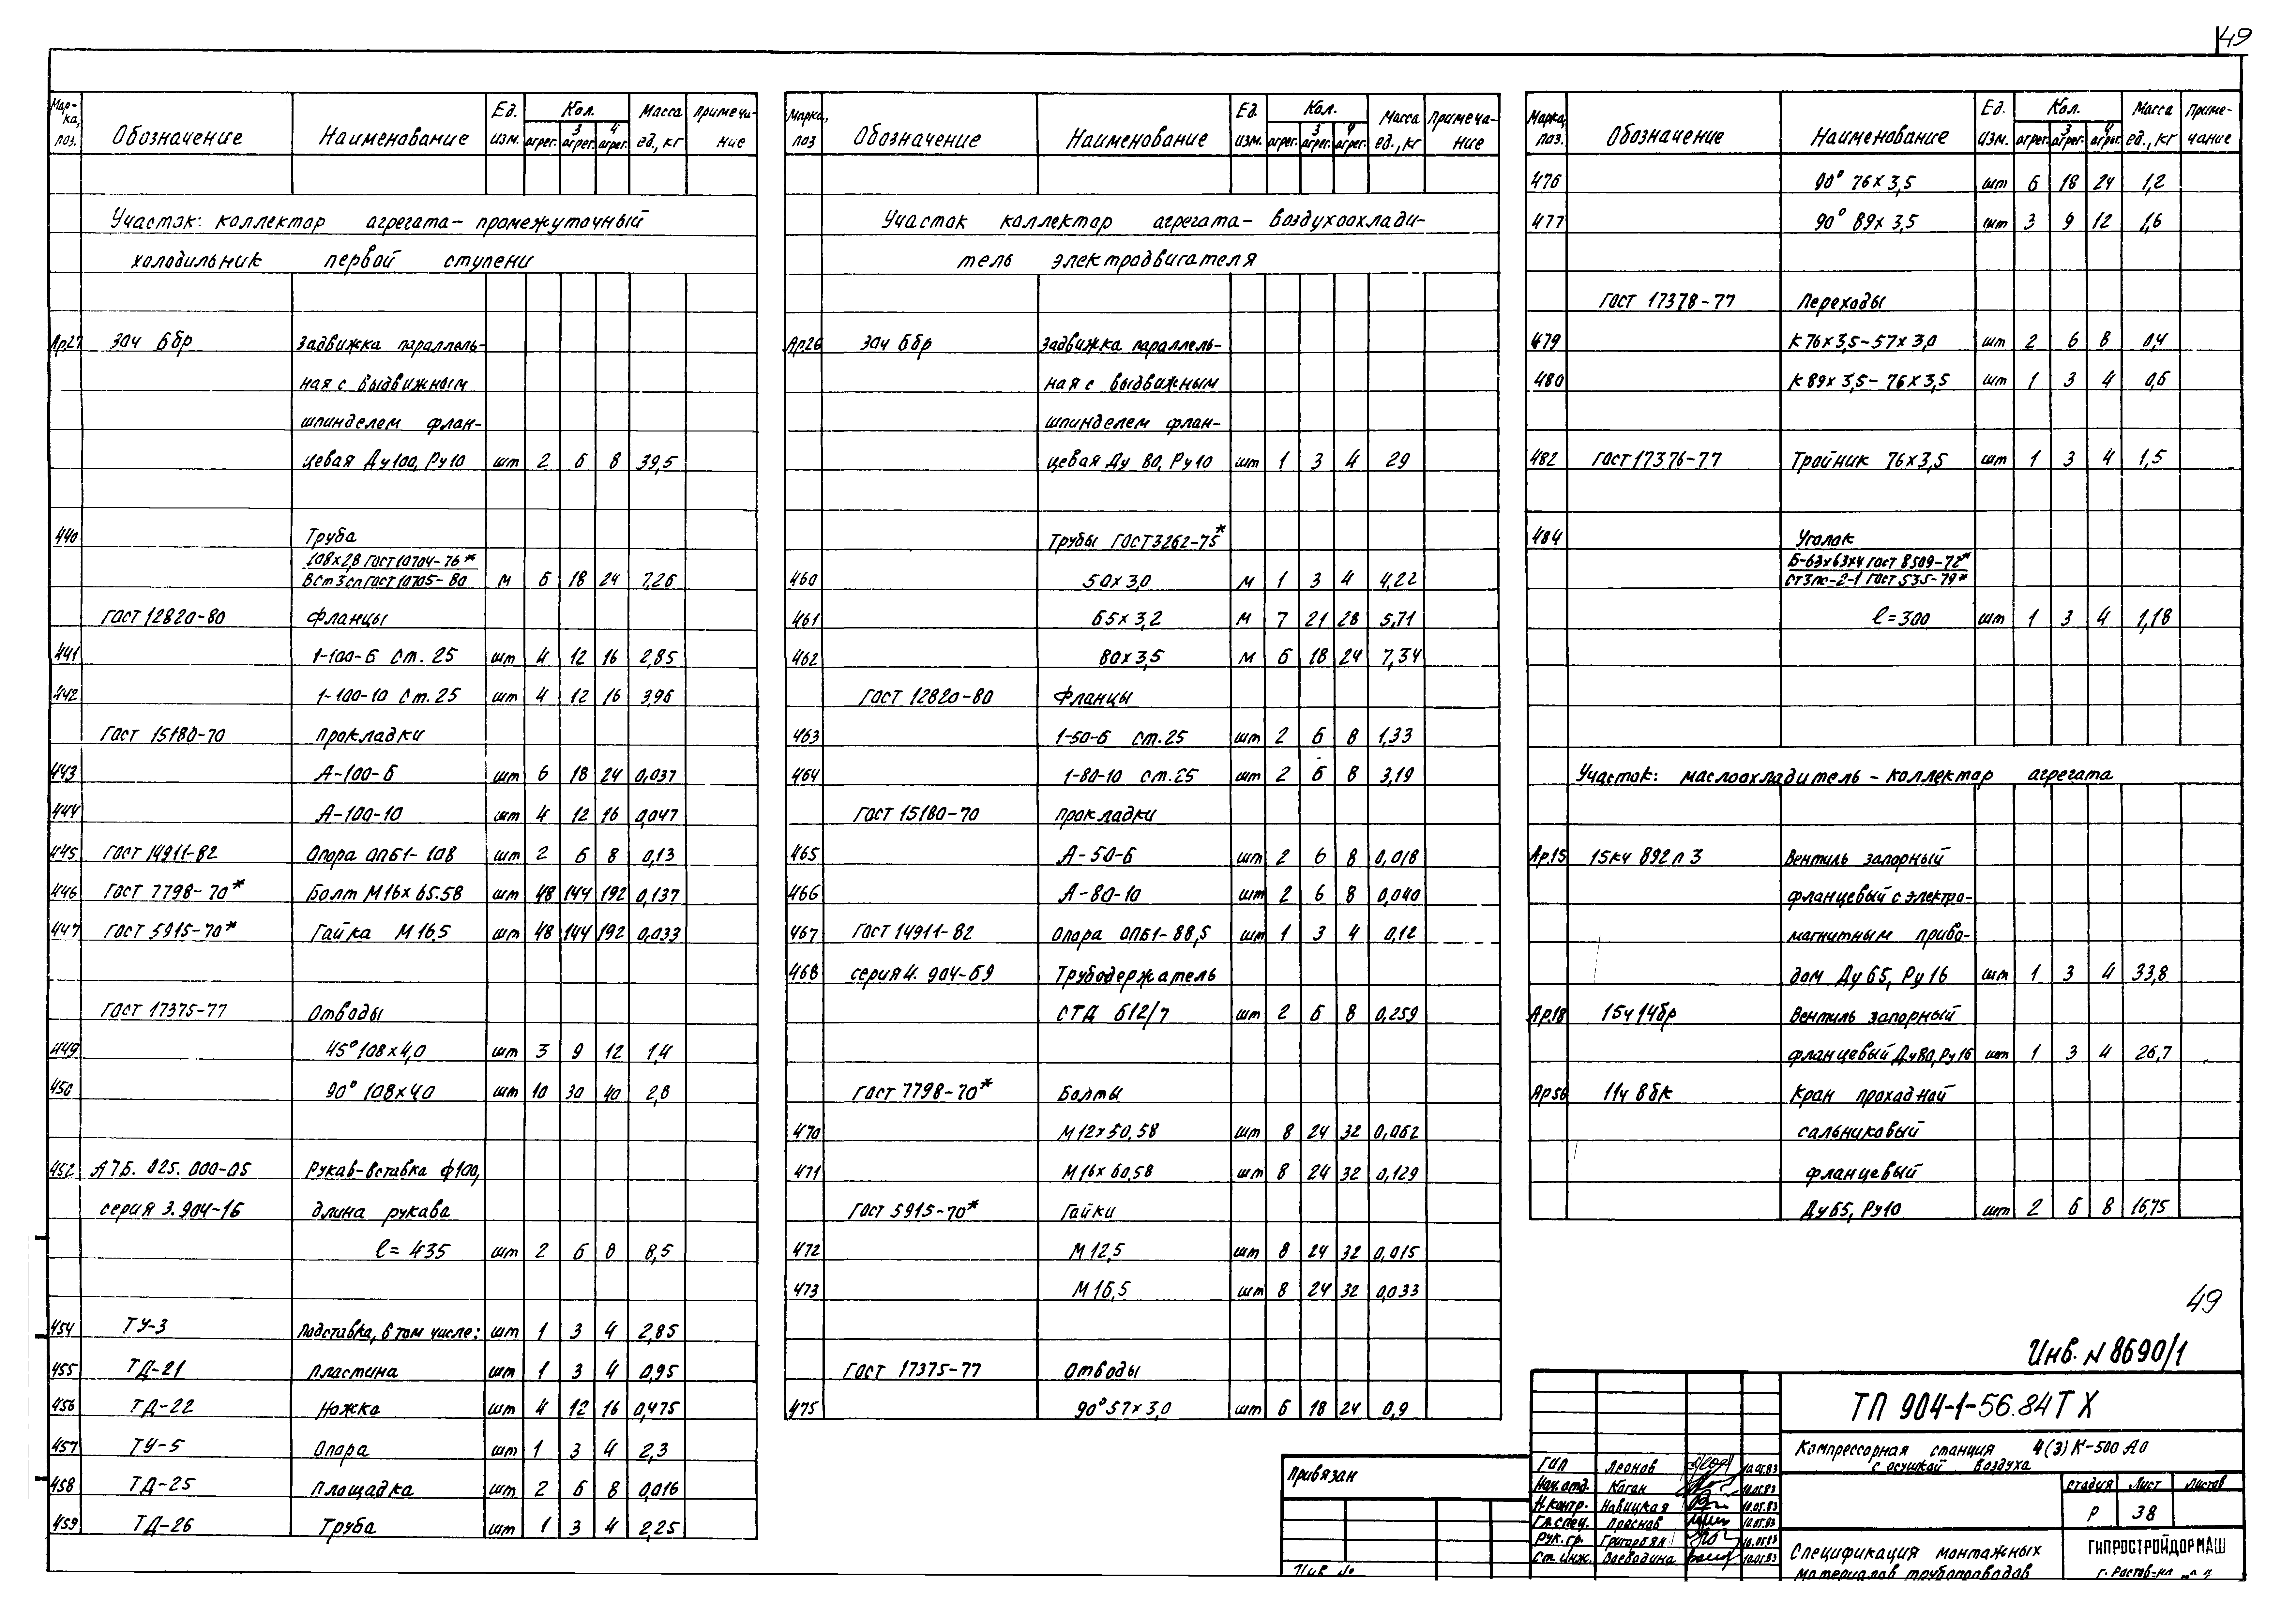 49
Мар-ка, поз. Обозначение Наименование Ед. изм. Кол. агрег. 3 агрег. 4 агрег. Масса ед., кг Примечание
Участок: коллектор агрегата – промежуточный
холодильник первой ступени
Ар27 30ч 6бр Задвижка параллель-
ная с выдвижным
шпинделем флан-
цевая Ду100, Ру10 шт 2 6 8 39,5
440 Труба
108х2,8 ГОСТ 10704-76*
ВСт3сп ГОСТ 10705-80 м 6 18 24 7,26
ГОСТ 12820-80 Фланцы
441 1-100-6 Ст. 25 шт 4 12 16 2,85
442 1-100-10 Ст. 25 шт 4 12 16 3,96
ГОСТ 15180-70 Прокладки
443 А-100-6 шт 6 18 24 0,037
444 А-100-10 шт 4 12 16 0,047
445 ГОСТ 14911-82 Опора ОПБ1-108 шт 2 6 8 0,13
446 ГОСТ 7798-70* Болт М16х65.58 шт 48 144 192 0,137
447 ГОСТ 5915-70* Гайка М16,5 шт 48 144 192 0,033
ГОСТ 17375-77 Отводы
449 45° 108х4,0 шт 3 9 12 1,4
450 90° 108х4,0 шт 10 30 40 2,8
452 А7Б. 025. 000-05 Рукав-вставка ф100,
серия 3.904-16 длина рукава
ℓ= 435 шт 2 6 8 8,5
454 ТУ-3 Подставка, в том числе: шт 1 3 4 2,85
455 ТД-21 Пластина шт 1 3 4 0,95
456 ТД-22 Ножка шт 4 12 16 0,475
457 ТУ-5 Опора шт 1 3 4 2,3
458 ТД-25 Площадка шт 2 6 8 0,016
459 ТД-26 Труба шт 1 3 4 2,25
Марка, поз Обозначение Наименование Ед. изм. Кол. агрег. 3 агрег. 4 агрег. Масса ед., кг Примечание
Участок коллектор агрегата – воздухоохлади-
тель электродвигателя
Ар.26 30ч 6бр Задвижка параллель-
ная с выдвижным
шпинделем флан-
цевая Ду 80, Ру10 шт 1 3 4 29
Трубы ГОСТ 3262-75*
460 50х3,0 м 1 3 4 4,22
461 65х3,2 м 7 21 28 5,71
462 80х3,5 м 6 18 24 7,34
ГОСТ 12820-80 Фланцы
463 1-50-6 Ст.25 шт 2 6 8 1,33
464 1-80-10 Ст.25 шт 2 6 8 3,19
ГОСТ 15180-70 Прокладки
465 А-50-6 шт 2 6 8 0,018
466 А-80-10 шт 2 6 8 0,040
467 ГОСТ 14911-82 Опора ОПБ1-88,5 шт 1 3 4 0,12
468 серия 4. 904-69 Трубодержатель
СТД 612/7 шт 2 6 8 0,259
ГОСТ 7798-70* Болты
470 М12х50,58 шт 8 24 32 0,062
471 М16х60,58 шт 8 24 32 0,129
ГОСТ 5915-70* Гайки
472 М12,5 шт 8 24 32 0,015
473 М16,5 шт 8 24 32 0,033
ГОСТ 17375-77 Отводы
475 90° 57х3,0 шт 6 18 24 0,9
Марка, поз. Обозначение Наименование Ед. изм. Кол. агрег. 3 агрег. 4 агрег. Масса ед., кг Приме-чание
476 90° 76х3,5 шт 6 18 24 1,2
477 90° 89х3,5 шт 3 9 12 1,6
ГОСТ 17378-77 Переходы
479 К76х3,5-57х3,0 шт 2 6 8 0,4
480 К89х3,5-76х3,5 шт 1 3 4 0,6
482 ГОСТ 17376-77 Тройник 76х3,5 шт 1 3 4 1,5
484 Уголок
Б-63х63х4 ГОСТ 8509-72*
Ст3пс-2-1 ГОСТ 535-79*
ℓ=300 шт 1 3 4 1,18
Участок: маслоохладитель – коллектор агрегата
Ар.15 15кч 892п3 Вентиль запорный
фланцевый с электро-
магнитным приво-
дом Ду 65, Ру16 шт 1 3 4 33,8
Ар.18 15ч14бр Вентиль запорный
фланцевый Ду80, Ру16 шт 1 3 4 26,7
Ар56 11ч 8бк Кран проходной
сальниковый
фланцевый
Ду65, Ру10 шт 2 6 8 16,75
49
Инв. N 8690/1
ТП 904-1-56.84 ТХ
Компрессорная станция 4(3)К-500 АО
с осушкой воздуха
Стадия Лист Листов
Р 38
Спецификация монтажных
материалов трубопроводов
ГИПРОСТРОЙДОРМАШ
г. Ростов-на
Привязан
Инв. №
ГИП Леонов 10.05.83
Нач. отд. Каган 10.05.83
Н.контр. Новицкая 10.05.83
Гл.спец. Краснов 10.05.83
Рук. гр. Григорьян 10.05.83
Ст. инж. Воеводина 10.05.83